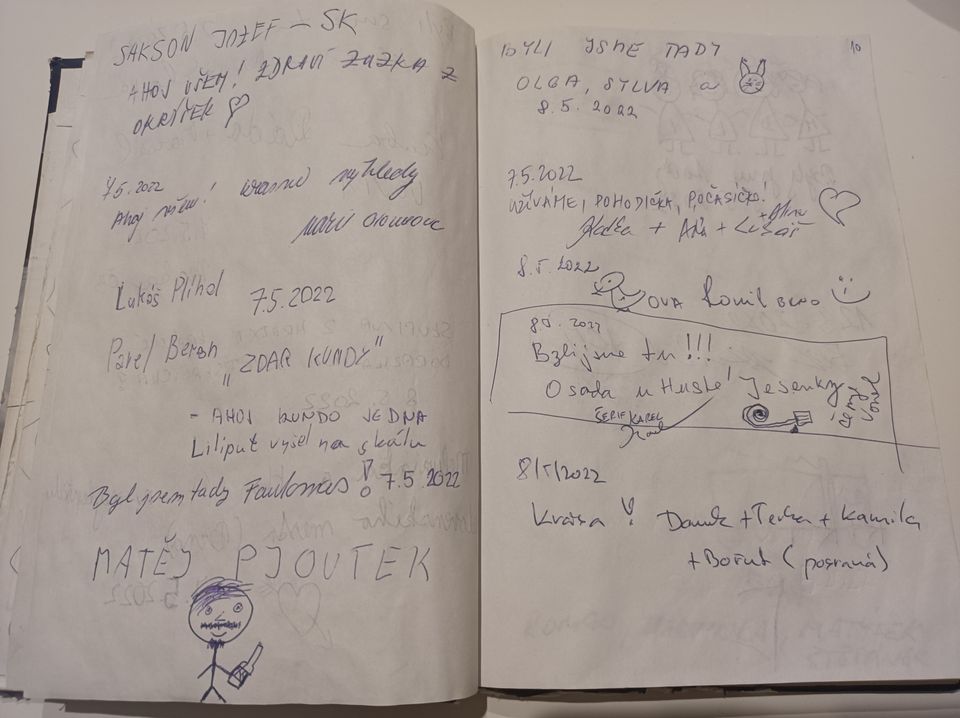 SAKSON JOZEF – SK
AHOJ VŠEM! ZDRAVÍ ZUZKA Z
OKŘÍŠEK
7.5.2022
Ahoj všem! krasné vyhledy
Olomouc
Lukáš Plíhal 7.5.2022
Pavel Beran „ZDAR KUNDY"
- AHOJ KUNDO JEDNA
Liliput vyšel na skálu
Byl jsem tady Fantomas! 7.5.2022
MATĚJ PJOUTEK
10
BYLI JSME TADY
OLGA, SYLVA a
8.5.2022
7.5.2022
UŽÍVÁME, POHODIČKA, POČASÍČKO!
Radka + Áďa + Lukáš
8.5.2022
OVA Romil BRNO
8.5. 2022
Byli jsme tu!!!
Osada u Huste! Jesenky
ŠERIF KAREL
8/5/2022
Krása! Danek + Terka + Kamila
+ Bořut (posraná)